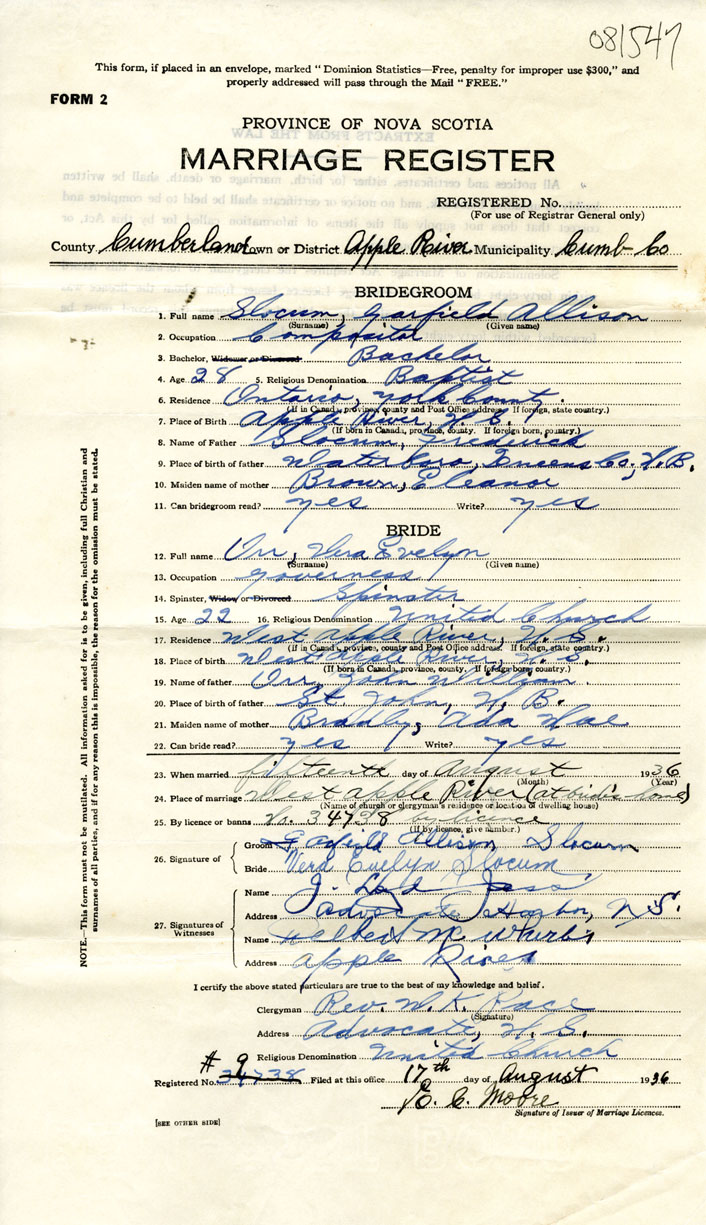 081547
This form, if placed in an envelope, marked "Dominion Statistics—Free, penalty for improper use $300," and
properly addressed will pass through the Mail "FREE."
FORM 2
PROVINCE OF NOVA SCOTIA
MARRIAGE REGISTER
REGISTERED No.
(For use of Registrar General only)
County Cumberland Town or District Apple River Municipality Cumb- Co
BRIDEGROOM
1. Full name Slocum, Garfield Allison
(Surname) (Given name)
2. Occupation Compositor
3. Bachelor, Widower or Divorced Bachelor
4. Age 28 5. Religious Denomination Baptist
6. Residence Ontario, York County.
(If in Canada, province, county and Post Office address. If foreign, state country.)
7. Place of Birth Apple River, N. S.
(If born in Canada, province, county. If foreign born, country.)
8. Name of Father Slocum, Frederick
9. Place of birth of father Waterboro, Queens Co., N. B.
10. Maiden name of mother Brown, Eleanor
11. Can bridegroom read? yes Write? yes
BRIDE
12. Full name Orr, Vera Evelyn
(Surname) (Given name)
13. Occupation governess
14. Spinster, Widow or Divorced Spinster
15. Age 22 16. Religious Denomination United Church
17. Residence West Apple River, N. S.
(If in Canada, province, county and Post Office address. If foreign, state country.)
18. Place of birth West Apple River, N. S.
(If born in Canada, province, county. If foreign born, country.)
19. Name of father Orr, John William
20. Place of birth of father St. John, N. B.
21. Maiden name of mother Bradly, Ada Mae
22. Can bride read? yes Write? yes
23. When married fifteenth day of August 1936
(Month) (Year)
24. Place of marriage West Apple River (at bride's home)
(Name of church or clergyman's residence or location of dwelling house)
25. By licence or banns No. 34738 by licence
(If by licence, give number.)
26. Signature of Groom Garfield Allison Slocum
Bride Vera Evelyn Slocum
27. Signatures of Witnesses
Name J. Lloyd
Address Advocate Harbor, N.S.
Name
Address Apple River
I certify the above stated particulars are true to the best of my knowledge and belief.
Clergyman Rev. W. K. Race
(Signature)
Address Advocate, N. S.
Religious Denomination United Church
# 9
Registered No. 34738 Filed at this office 17th day of August 1936
E. C. Moore
Signature of Issuer of Marriage Licences.
[SEE OTHER SIDE]
NOTE.—This form must not be mutilated. All information asked for is to be given, including full Christian and
surnames of all parties, and if for any reason this is impossible, the reason for the omission must be stated.